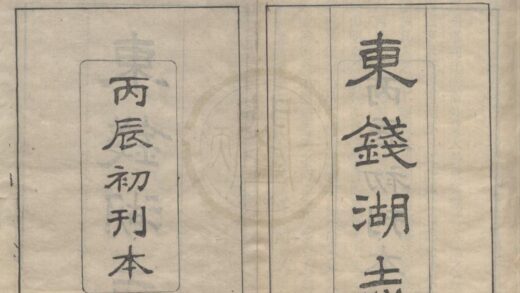 東錢湖
丙辰初刊本